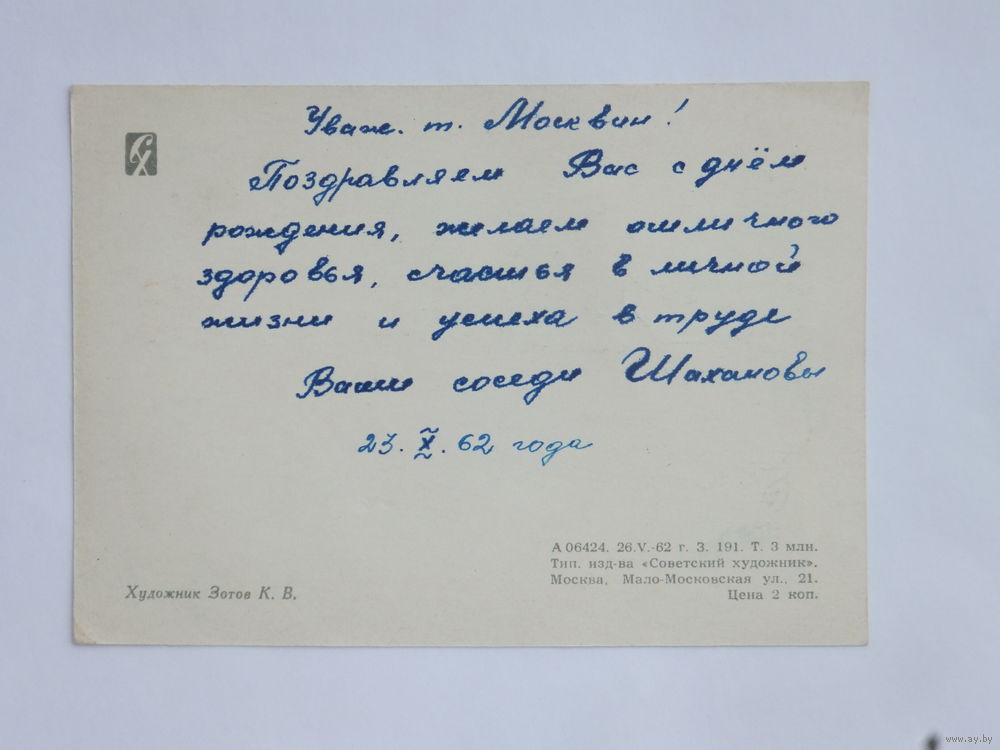 Уваж. т. Москвин!
Поздравляем Вас с днём
рождения, желаем отличного
здоровья, счастья в личной
жизни и успеха в труде
Ваши соседи Шахановы
23. X. 62 года
А 06424. 26.V.-62 г. З. 191. Т. 3 млн.
Тип. изд-ва «Советский художник».
Москва, Мало-Московская ул., 21.
Цена 2 коп.
Художник Зотов К. В.
www.ay.by